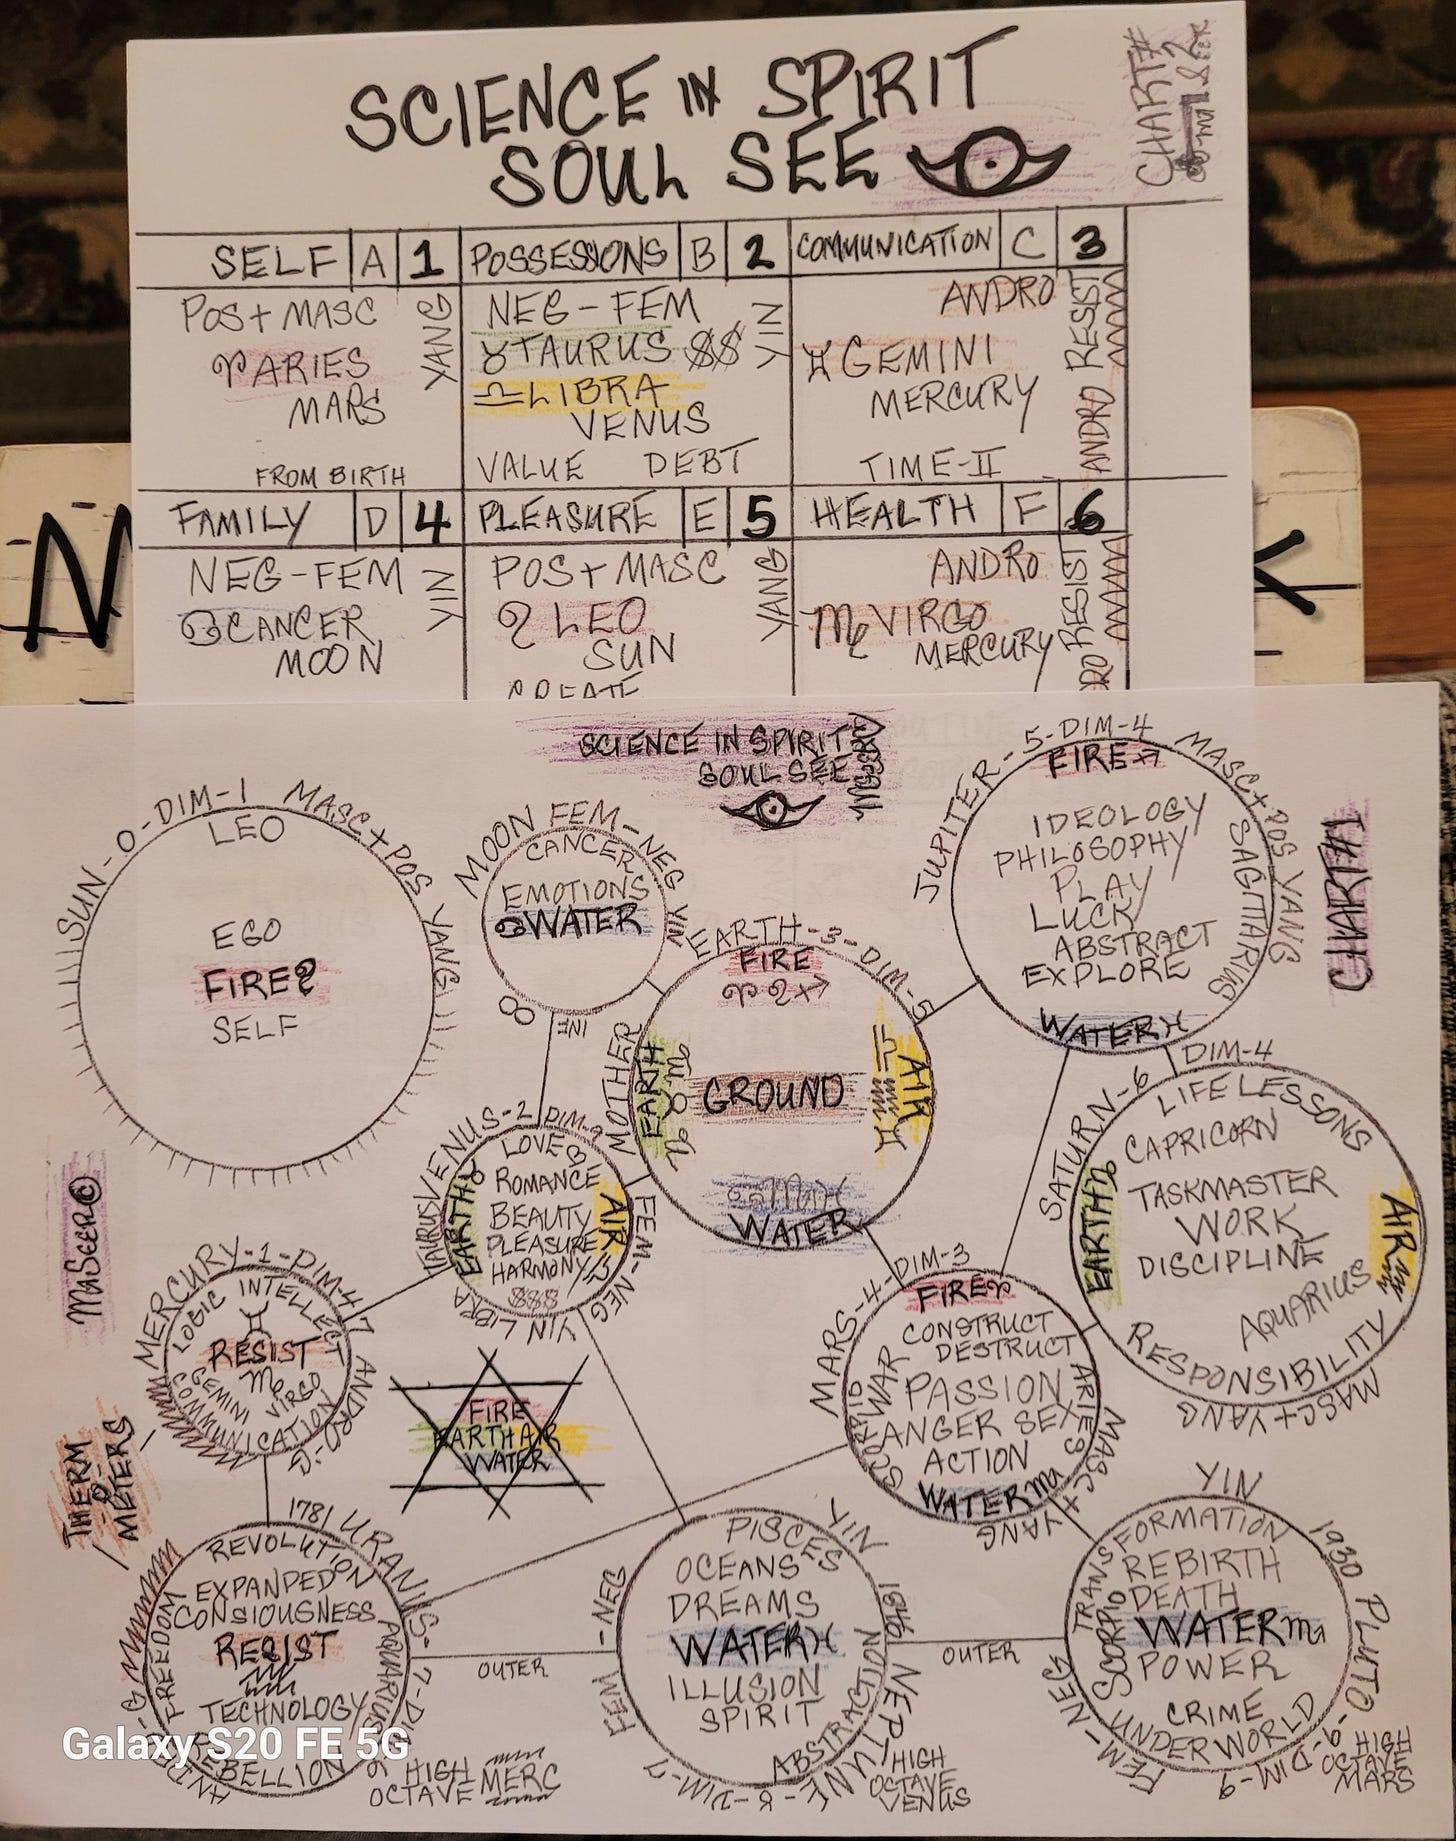 SCIENCE IN SPIRIT
SOUL SEE
CHART# 2
SELF A 1
POS+ MASC
YANG
♈ARIES
MARS
FROM BIRTH
POSSESSIONS B 2
NEG-FEM
YIN
♉TAURUS $$
♎LIBRA
VENUS
VALUE DEBT
COMMUNICATION C 3
ANDRO
♊GEMINI
MERCURY
TIME-II
ANDRO RESIST
FAMILY D 4
NEG-FEM
YIN
♋CANCER
MOON
PLEASURE E 5
POS+MASC
YANG
♌ LEO
SUN
CREATE
HEALTH F 6
ANDRO
♍ VIRGO
MERCURY
RESIST
SCIENCE IN SPIRIT
SOUL SEE
CHART#1
SUN-0-DIM-1 MASC+POS YANG
LEO
EGO
FIRE♌
SELF
MOON FEM-NEG YIN
CANCER
EMOTIONS
♋WATER
8
INFI
JUPITER-5-DIM-4 MASC+POS YANG
FIRE♐
IDEOLOGY
PHILOSOPHY
PLAY
LUCK
ABSTRACT
EXPLORE
SAGITTARIUS
WATER♓
EARTH-3-DIM-5
MOTHER
FIRE
♈♌♐
EARTH
♑♉♍
GROUND
AIR
♎♒♊
♋♏♓
WATER
SATURN-6 DIM-4
LIFE LESSONS
CAPRICORN
TASKMASTER
WORK
DISCIPLINE
EARTH♑
AIR♒
AQUARIUS
RESPONSIBILITY
MASC+YANG
VENUS-2 DIM-2
TAURUS
LOVE
ROMANCE
BEAUTY
PLEASURE
HARMONY
$$$
EARTH♉
AIR♎
LIBRA
FEM-NEG
YIN
MaSeer©
MERCURY-1-DIM-47 ANDRO-G
LOGIC INTELLECT
♊
RESIST
♍
GEMINI VIRGO
COMMUNICATION
MARS-4-DIM-3
FIRE♈
CONSTRUCT
DESTRUCT
WAR
PASSION
ANGER SEX
ACTION
WATER♏
SCORPIO
ARIES
MASC+
YANG
FIRE
EARTH AIR
WATER
THERM
O
METERS
1781 URANUS-7-DIM-6
REVOLUTION
EXPANDED
CONSIOUSNESS
RESIST
TECHNOLOGY
REBELLION
FREEDOM
AQUARIUS
HIGH
OCTAVE MERC
OUTER
FEM-NEG
YIN
PISCES
OCEANS
DREAMS
WATER♓
ILLUSION
SPIRIT
ABSTRACTION
1846 NEPTUNE-8-DIM-7
HIGH
OCTAVE
VENUS
OUTER
YIN
1930 PLUTO-9-DIM-9
TRANSFORMATION
REBIRTH
DEATH
WATER♏
POWER
CRIME
UNDERWORLD
SCORPIO
FEM-NEG
HIGH
OCTAVE
MARS
Galaxy S20 FE 5G